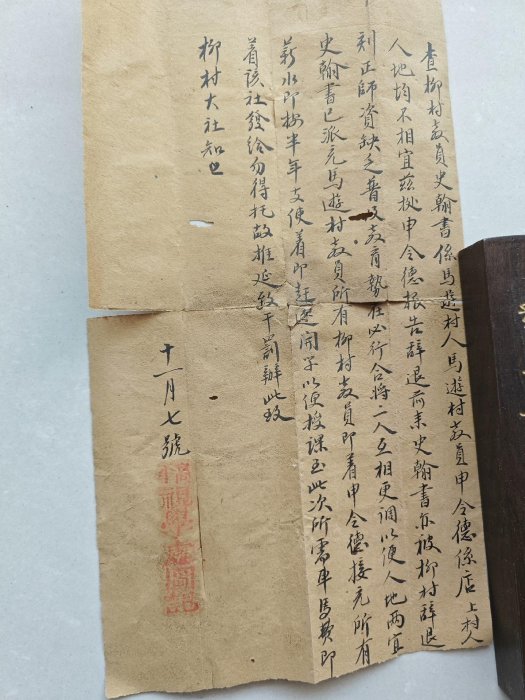 查柳村教員史翰書係馬遊村人馬遊村教員申令德係店上村人
人地均不相宜茲據申令德報告辭退前來史翰書亦被柳村辭退
刻正師資缺乏普及教育勢在必行合將二人互相更調以便人地兩宜
史翰書已派充馬遊村教員所有柳村教員即着申令德接充所有
薪水即按半年支使着即赶速開學以便授課至此次所需車馬費即
着該社發給勿得托故推延致干罰辦此致
柳村大社知巳
十一月七號
視學